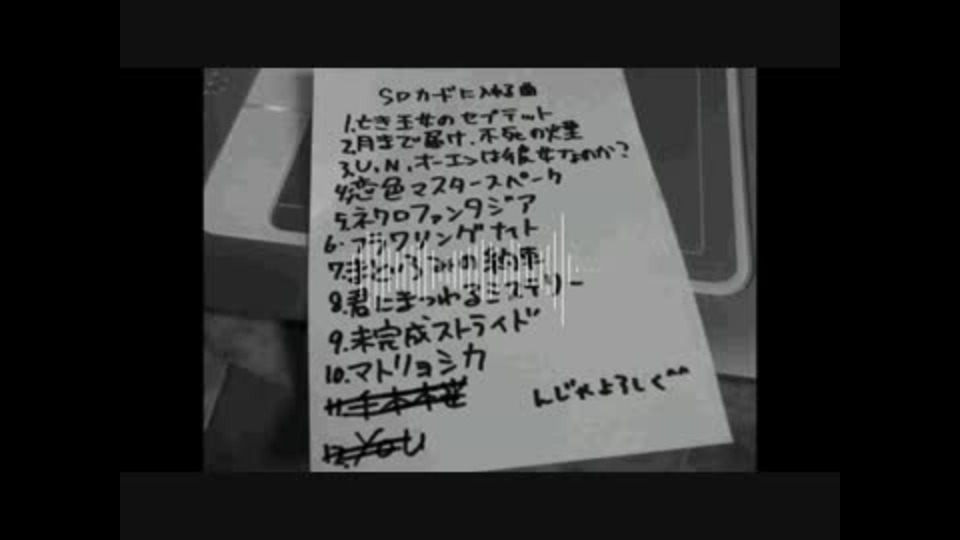 SDカードに入れる曲
1.亡き王女のセプテット
2.月まで届け、不死の煙
3.U.N.オーエンは彼女なのか?
4.恋色マスタースパーク
5.ネクロファンタジア
6.フラワリングナイト
7.まどろみの約束
8.君にまつわるミステリー
9.未完成ストライド
10.マトリョシカ
11.千本桜
12.You
んじゃよろしく^^